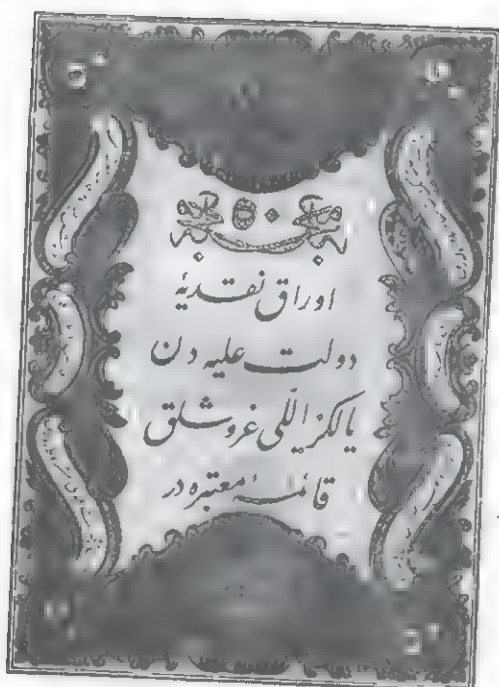 ۵۰
اوراق نقدیهٔ
دولت علیه دن
یالکز اللی غروشلق
قائمهٔ معتبره در